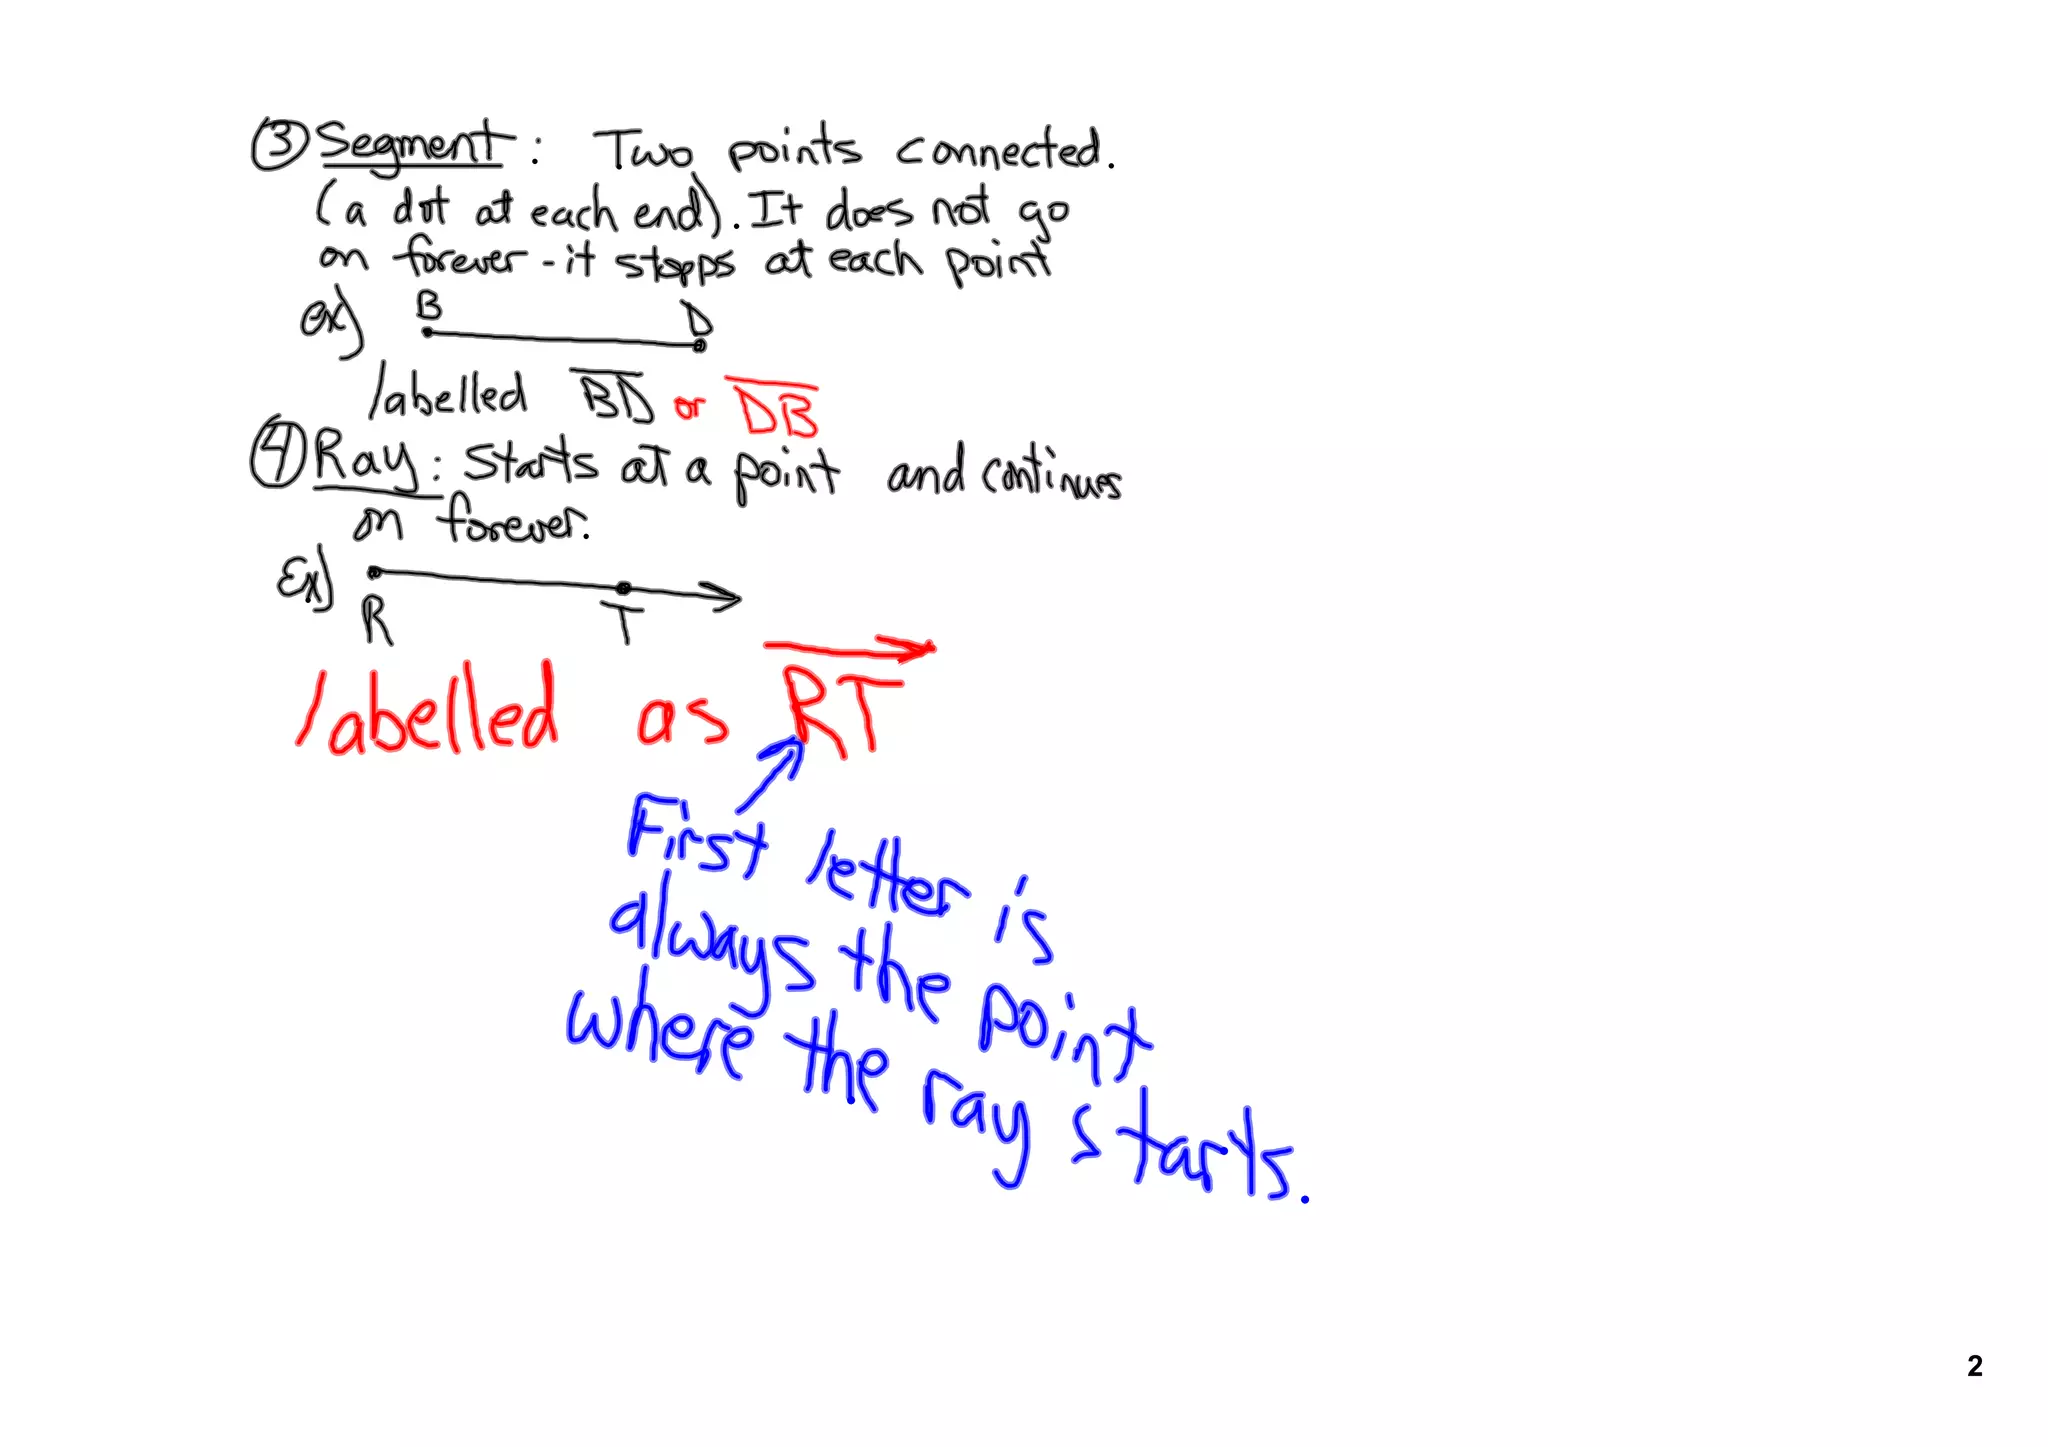 ③ Segment: Two points connected.
(a dot at each end). It does not go
on forever - it stops at each point
ex)
B D
labelled BD or DB
④ Ray: Starts at a point and continues
on forever.
Ex)
R T
labelled as RT
First letter is
always the point
where the ray starts.
2